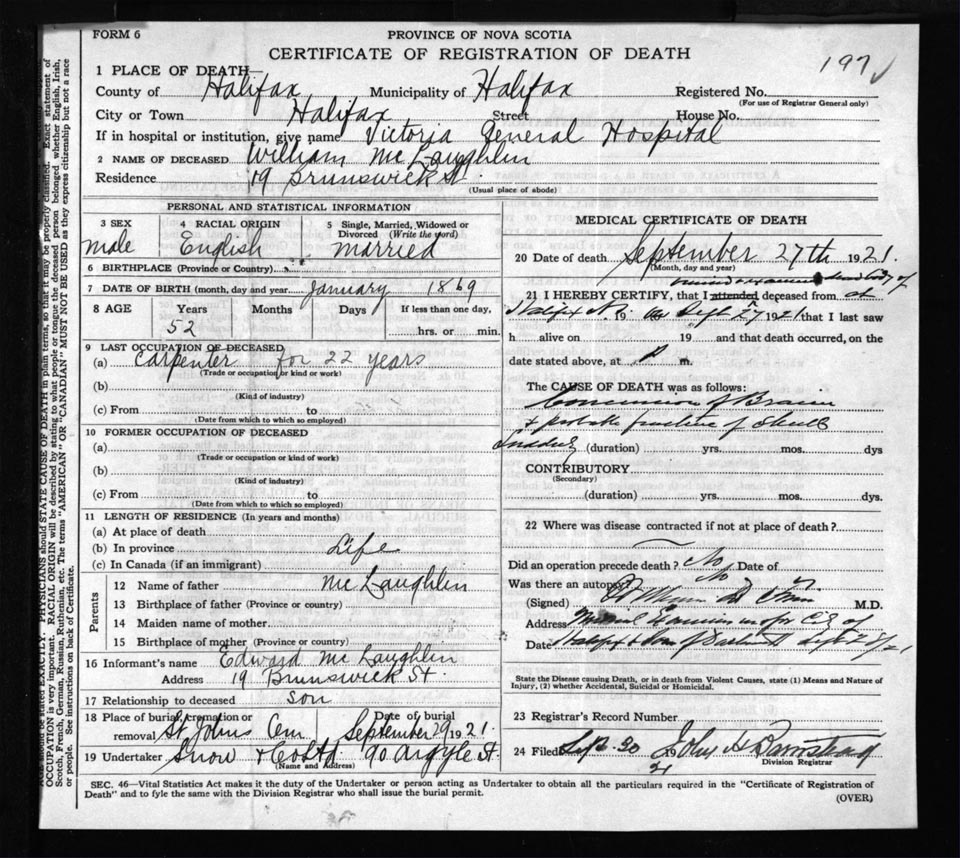 FORM 6
PROVINCE OF NOVA SCOTIA
CERTIFICATE OF REGISTRATION OF DEATH
197
1 PLACE OF DEATH
County of Halifax Municipality of Halifax Registered No.
(For use of Registrar General only)
City or Town Halifax Street House No.
If in hospital or institution, give name Victoria General Hospital
2 NAME OF DECEASED William McLaughlin
Residence 19 Brunswick St.
(Usual place of abode)
PERSONAL AND STATISTICAL INFORMATION
3 SEX 4 RACIAL ORIGIN 5 Single, Married, Widowed or Divorced (Write the word)
male English married
6 BIRTHPLACE (Province or Country)
7 DATE OF BIRTH (month, day and year) January 1869
8 AGE Years Months Days If less than one day,
52 hrs. or min.
9 LAST OCCUPATION OF DECEASED
(a) Carpenter for 22 years
(Trade or occupation or kind or work)
(b)
(Kind of industry)
(c) From to
(Date from which to which so employed)
10 FORMER OCCUPATION OF DECEASED
(a)
(Trade or occupation or kind of work)
(b)
(Kind of industry)
(c) From to
(Date from which to which so employed)
11 LENGTH OF RESIDENCE (In years and months)
(a) At place of death
(b) In province Life
(c) In Canada (if an immigrant)
Parents
12 Name of father McLaughlin
13 Birthplace of father (Province or country)
14 Maiden name of mother
15 Birthplace of mother (Province or country)
16 Informant's name Edward McLaughlin
Address 19 Brunswick St.
17 Relationship to deceased son
18 Place of burial, cremation or removal St. Johns Cem. Date of burial September 29 1921.
19 Undertaker Snow & Co Ltd 90 Argyle St.
(Name and Address)
MEDICAL CERTIFICATE OF DEATH
20 Date of death September 27th 1921.
(Month, day and year)
dead body of
21 I HEREBY CERTIFY, that I attended deceased from at
Halifax N.S. Sept 27 1921 that I last saw
h alive on 19 and that death occurred, on the
date stated above, at P m.
The CAUSE OF DEATH was as follows:
Concussion of Brain
& probable fracture of Skull
(duration) yrs. mos. dys
CONTRIBUTORY
(Secondary)
(duration) yrs. mos. dys.
22 Where was disease contracted if not at place of death?
Did an operation precede death? No Date of
Was there an autopsy No
(Signed) M.D.
Address Medical Examiner for City of
Date Halifax & Town of Dartmouth Sept 27/21
State the Disease causing Death, or in death from Violent Causes, state (1) Means and Nature of
Injury, (2) whether Accidental, Suicidal or Homicidal.
23 Registrar's Record Number
24 Filed Sept. 30 1921 John H Barnstead
Division Registrar
SEC. 46—Vital Statistics Act makes it the duty of the Undertaker or person acting as Undertaker to obtain all the particulars required in the "Certificate of Registration of
Death" and to fyle the same with the Division Registrar who shall issue the burial permit.
(OVER)
should be stated EXACTLY. PHYSICIANS should STATE CAUSE OF DEATH in plain terms, so that it may be properly classified. Exact statement of
OCCUPATION is very important. RACIAL ORIGIN will be described by stating to what people or tongue the deceased person belonged whether English, Irish,
Scotch, French, German, Russian, Ruthenian, etc. The terms "AMERICAN" OR "CANADIAN" MUST NOT BE USED as they express citizenship but not a race
or people. See instructions on back of Certificate.